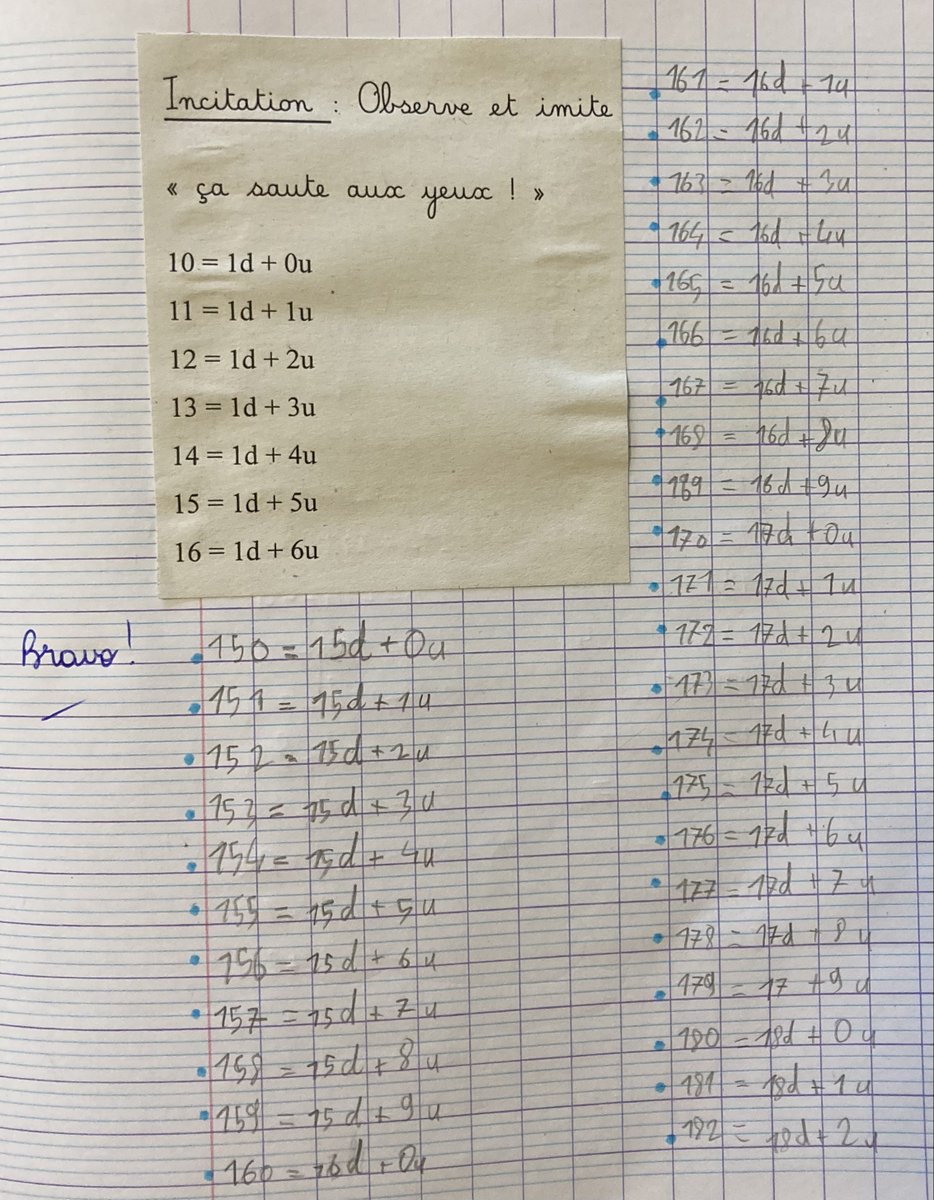 Incitation : Observe et imite
« ça saute aux yeux ! »
10 = 1d + 0u
11 = 1d + 1u
12 = 1d + 2u
13 = 1d + 3u
14 = 1d + 4u
15 = 1d + 5u
16 = 1d + 6u
Bravo!
150 = 15d + 0u
151 = 15d + 1u
152 = 15d + 2u
153 = 15d + 3u
154 = 15d + 4u
155 = 15d + 5u
156 = 15d + 6u
157 = 15d + 7u
158 = 15d + 8u
159 = 15d + 9u
160 = 16d + 0u
161 = 16d + 1u
162 = 16d + 2u
163 = 16d + 3u
164 = 16d + 4u
165 = 16d + 5u
166 = 16d + 6u
167 = 16d + 7u
168 = 16d + 8u
189 = 16d + 9u
170 = 17d + 0u
171 = 17d + 1u
172 = 17d + 2u
173 = 17d + 3u
174 = 17d + 4u
175 = 17d + 5u
176 = 17d + 6u
177 = 17d + 7u
178 = 17d + 8u
179 = 17 + 9u
180 = 18d + 0u
181 = 18d + 1u
182 = 18d + 2u